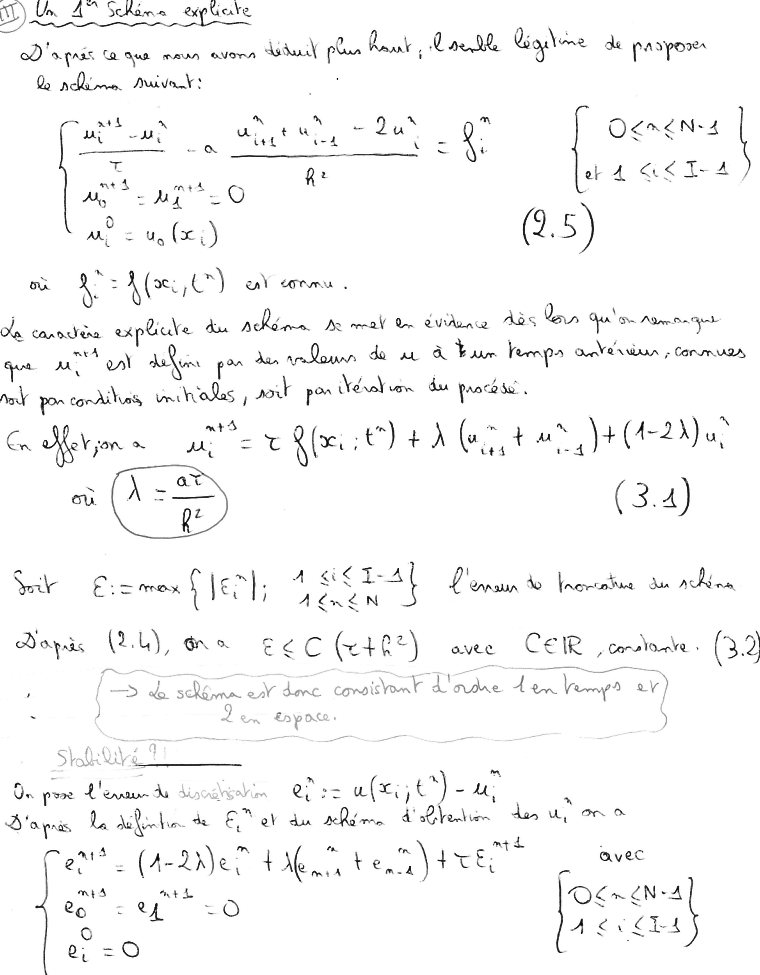 III Un 1er Schéma explicite
D'après ce que nous avons déduit plus haut, il semble légitime de proposer
le schéma suivant:
{ (u_i^{n+1} - u_i^n)/τ - a (u_{i+1}^n + u_{i-1}^n - 2u_i^n)/h² = f_i^n { 0≤n≤N-1
u_0^{n+1} = u_1^{n+1} = 0 et 1≤i≤I-1 }
u_i^0 = u_0(x_i) (2.5)
où f_i^n = f(x_i, t^n) est connu.
Le caractère explicite du schéma se met en évidence dès lors qu'on remarque
que u_i^{n+1} est défini par des valeurs de u à un temps antérieur, connues
soit par conditions initiales, soit par itération du procédé.
En effet, on a u_i^{n+1} = τ f(x_i; t^n) + λ (u_{i+1}^n + u_{i-1}^n) + (1-2λ) u_i^n
où λ = aτ/h² (3.1)
Soit ε := max { |ε_i^n| ; 1≤i≤I-1 1≤n≤N } l'erreur de troncature du schéma
D'après (2.4), on a ε ≤ C (τ+h²) avec C∈ℝ, constante. (3.2)
→ Le schéma est donc consistant d'ordre 1 en temps et
2 en espace.
Stabilité ?!
On pose l'erreur de discrétisation e_i^n := u(x_i; t^n) - u_i^n
D'après la défintion de ε_i^n et du schéma d'obtention des u_i^n on a
{ e_i^{n+1} = (1-2λ) e_i^n + λ(e_{n+1}^n + e_{n-1}^n) + τ ε_i^{n+1} avec
e_0^{n+1} = e_1^{n+1} = 0 { 0≤n≤N-1
e_i^0 = 0 1≤i≤I-1 }